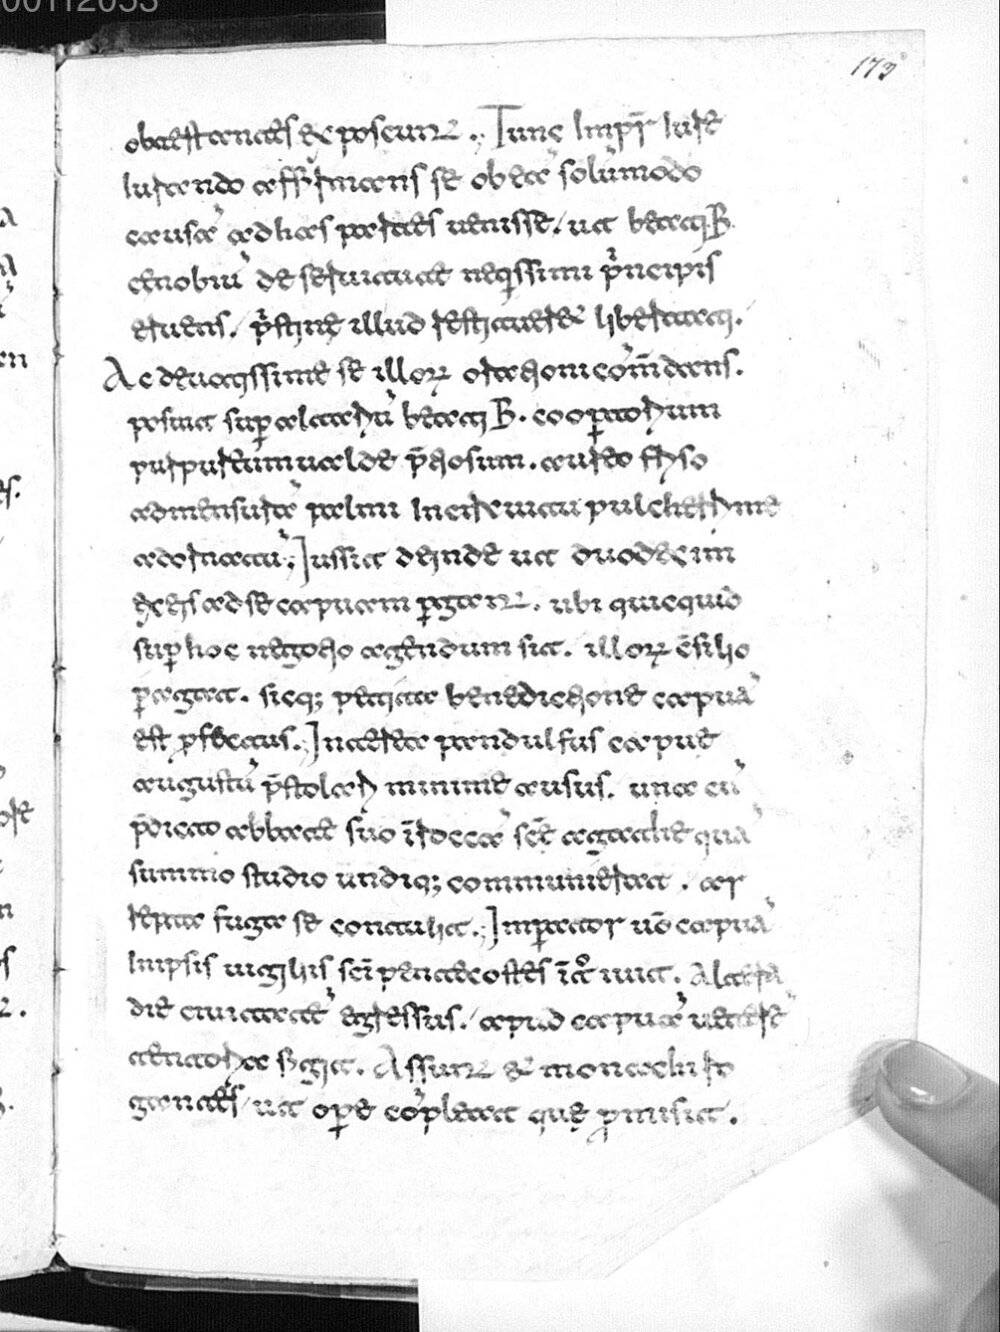 00112053
173
obtestantes exposcunt. Tunc Imp̄r iure
iurando affirmans se ob ea solummodo
causā ad has partes uenisse, ut beati B.
cenobiū de seruitute neq̄ssimi pncipis
eruens, pstine illud restitueret libertati.
Ac deuotissime se illorꝝ orationi com̄dans.
posuit sup altariū beati B. coopatorium
purpureum ualde p̄tiosum. aureo friso
ad mensurā palmi In circuitu pulcherrime
adornatū; Iussit deinde ut duodecim
ex eis ad se capuam pgant. ubi quicquid
sup hoc negotio agendum sit. illorꝝ c̄silio
pagat. sicq; petita benedictione capuā
est pfectus. Interea pandulfus capue
augustū p̄stolari minime ausus. una cū
p̄dicto abbate suo ī rocca sc̄e agathe quā
summo studio undiq; communierat. ar
repta fuga se contulit. Imperator u̅o capuā
In ipsis uigiliis sc̄i pentecostes īt̊iuit. Altera
die ciuitatē egressus. apud capuā uetere
tentoria figit. Assunt & monachi ro
gantes, ut ope cōpleat que pmisit.